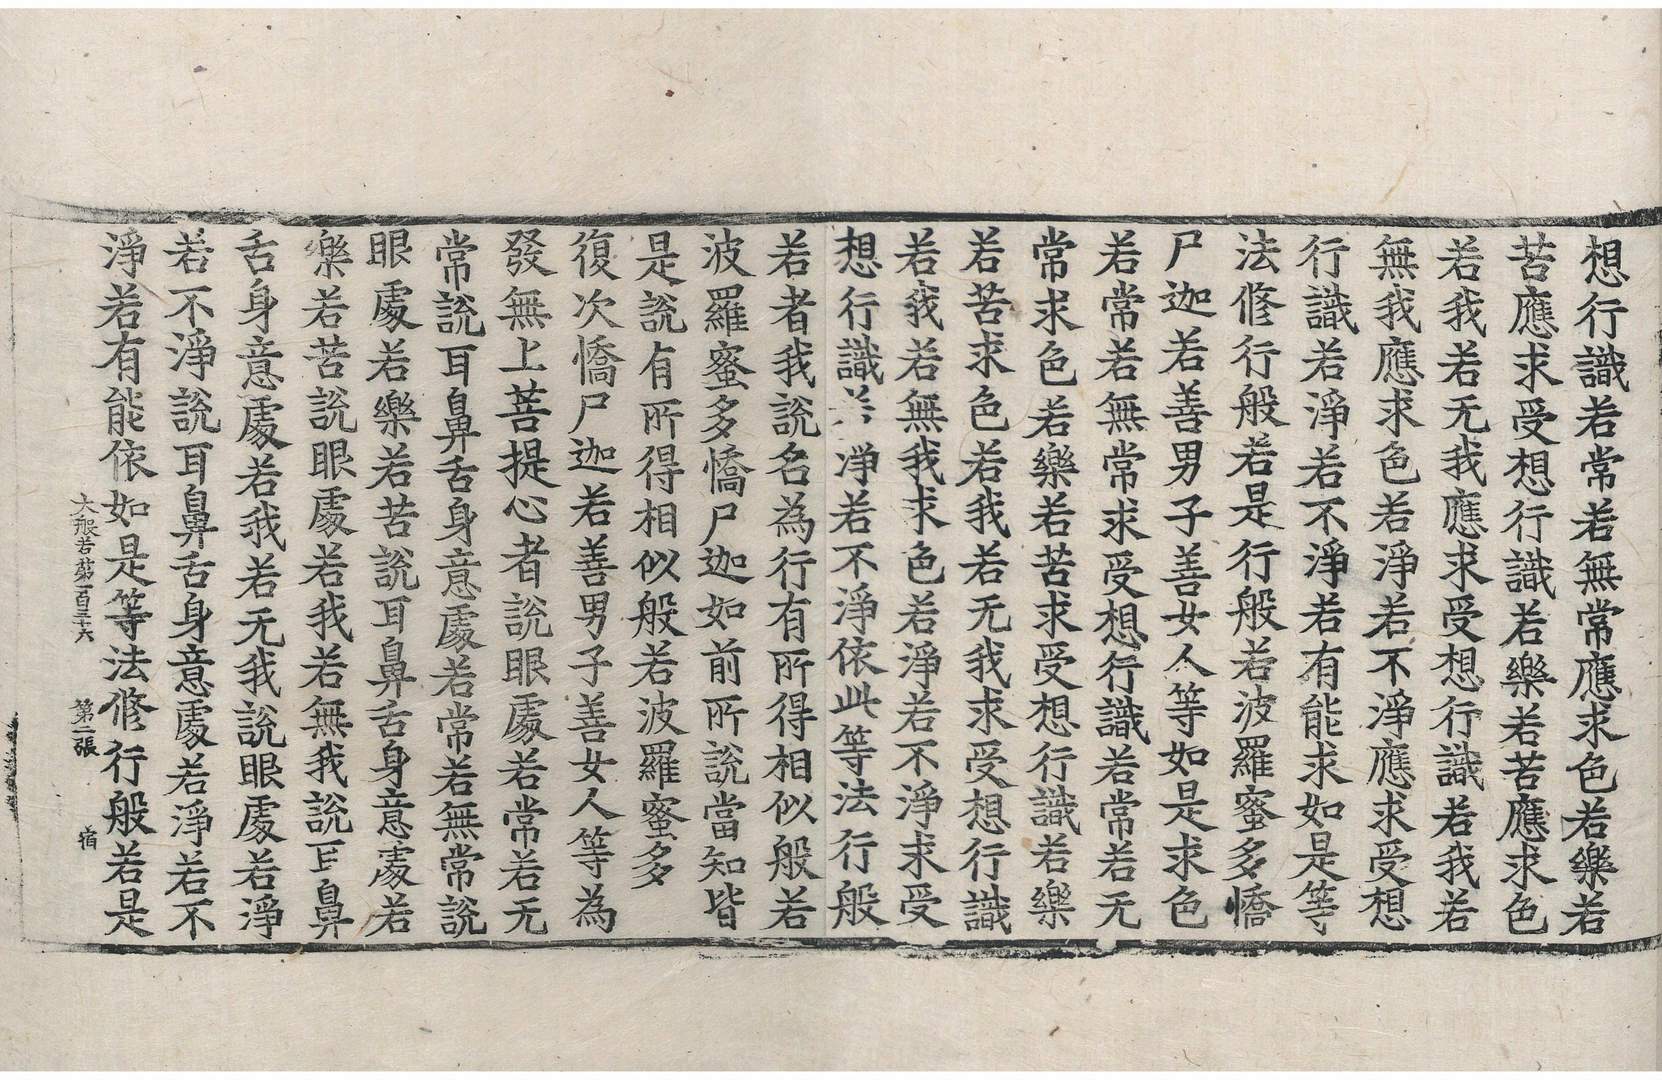 想行識若常若無常應求色若樂若
苦應求受想行識若樂若苦應求色
若我若无我應求受想行識若我若
無我應求色若淨若不淨應求受想
行識若淨若不淨若有能求如是等
法修行般若是行般若波羅蜜多憍
尸迦若善男子善女人等如是求色
若常若無常求受想行識若常若无
常求色若樂若苦求受想行識若樂
若苦求色若我若无我求受想行識
若我若無我求色若淨若不淨求受
想行識若淨若不淨依此等法行般
若者我說名為行有所得相似般若
波羅蜜多憍尸迦如前所說當知皆
是說有所得相似般若波羅蜜多
復次憍尸迦若善男子善女人等為
發無上菩提心者說眼處若常若无
常說耳鼻舌身意處若常若無常說
眼處若樂若苦說耳鼻舌身意處若
樂若苦說眼處若我若無我說耳鼻
舌身意處若我若无我說眼處若淨
若不淨說耳鼻舌身意處若淨若不
淨若有能依如是等法修行般若是
大般若第一百三十六 第二張 宿